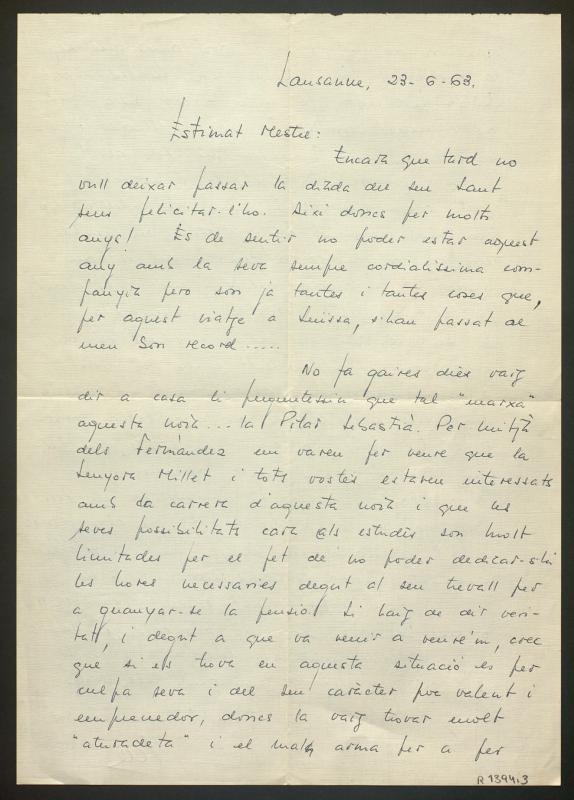 Lausanne, 23-6-63.
Estimat Mestre:
Encara que tard no
vull deixar passar la diada del seu Sant
sens felicitar-l'ho. Aixi doncs per molts
anys! Es de sentir no poder estar aquest
any amb la seva sempre cordialissima com-
panyia pero son ja tantes i tantes coses que,
per aquest viatge a Suissa, s'han passat al
meu Son record.....
No fa gaires dies vaig
dir a casa li preguntessin que tal "marxa"
aquesta noia... la Pilar Sebastià. Per mitjà
dels Fernàndez em varen fer veure que la
Senyora Millet i tots vostès estaven interessats
amb la carrera d'aquesta noia i que les
seves possibilitats cara als estudis son molt
limitades per el fet de no poder dedicar-s'hi
les hores necessaries degut al seu trevall per
a guanyar-se la pensio. Si haig de dir veri-
tat, i degut a que va venir a veure'm, crec
que si es trova en aquesta situació es per
culpa seva i del seu caràcter poc valent i
emprenedor, doncs la vaig trovar molt
"aturadeta" i el mal arma per a fer
R 1394.3